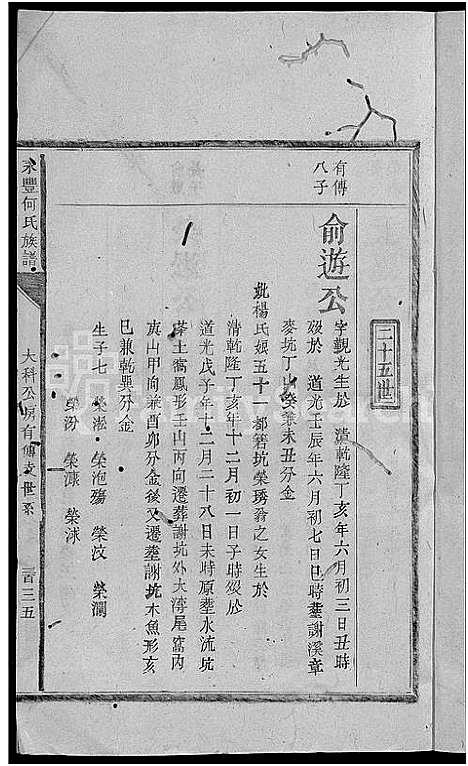 二十五世
有傳
八子
俞遊公
字覲光生於　清乾隆丁亥年六月初三日丑時
歿於　道光壬辰年六月初七日巳時塟謝溪章
麥坑丁山癸兼未丑分金
妣楊氏娘五十一都箬坑榮琇翁之女生於
清乾隆丁亥年十二月初一日子時歿於
道光戊子年十二月二十八日未時原塟水流坑
茶土窩鳳形壬山丙向遷葬謝坑外大湾尾窩內
寅山甲向兼酉卯分金後又遷塟謝坑木魚形亥
巳兼乾巽分金
生子七　榮淞　榮滟殤　榮汶　榮瀾
榮汾　榮濂　榮洣
永豐何氏族譜
大科公房有傳支世系
一百三五